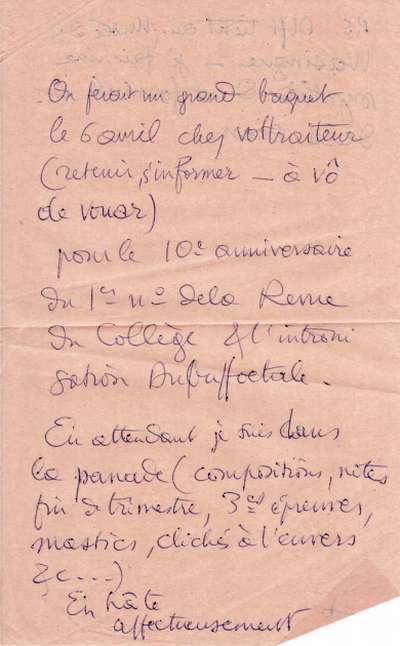 On ferait un grand baquet
le 6 avril chez vottraiteur
(retenir, s'informer — à vô
de vouar)
pour le 10e anniversaire
du 1er no dela Revue
du Collège & l'introni
sation Dubuffoetale.
En attendant je suis dans
la panade (compositions, notes
fin de trimestre, 3es épreuves,
mastics, clichés à l'envers
&c...)
En hâte
affectueusement